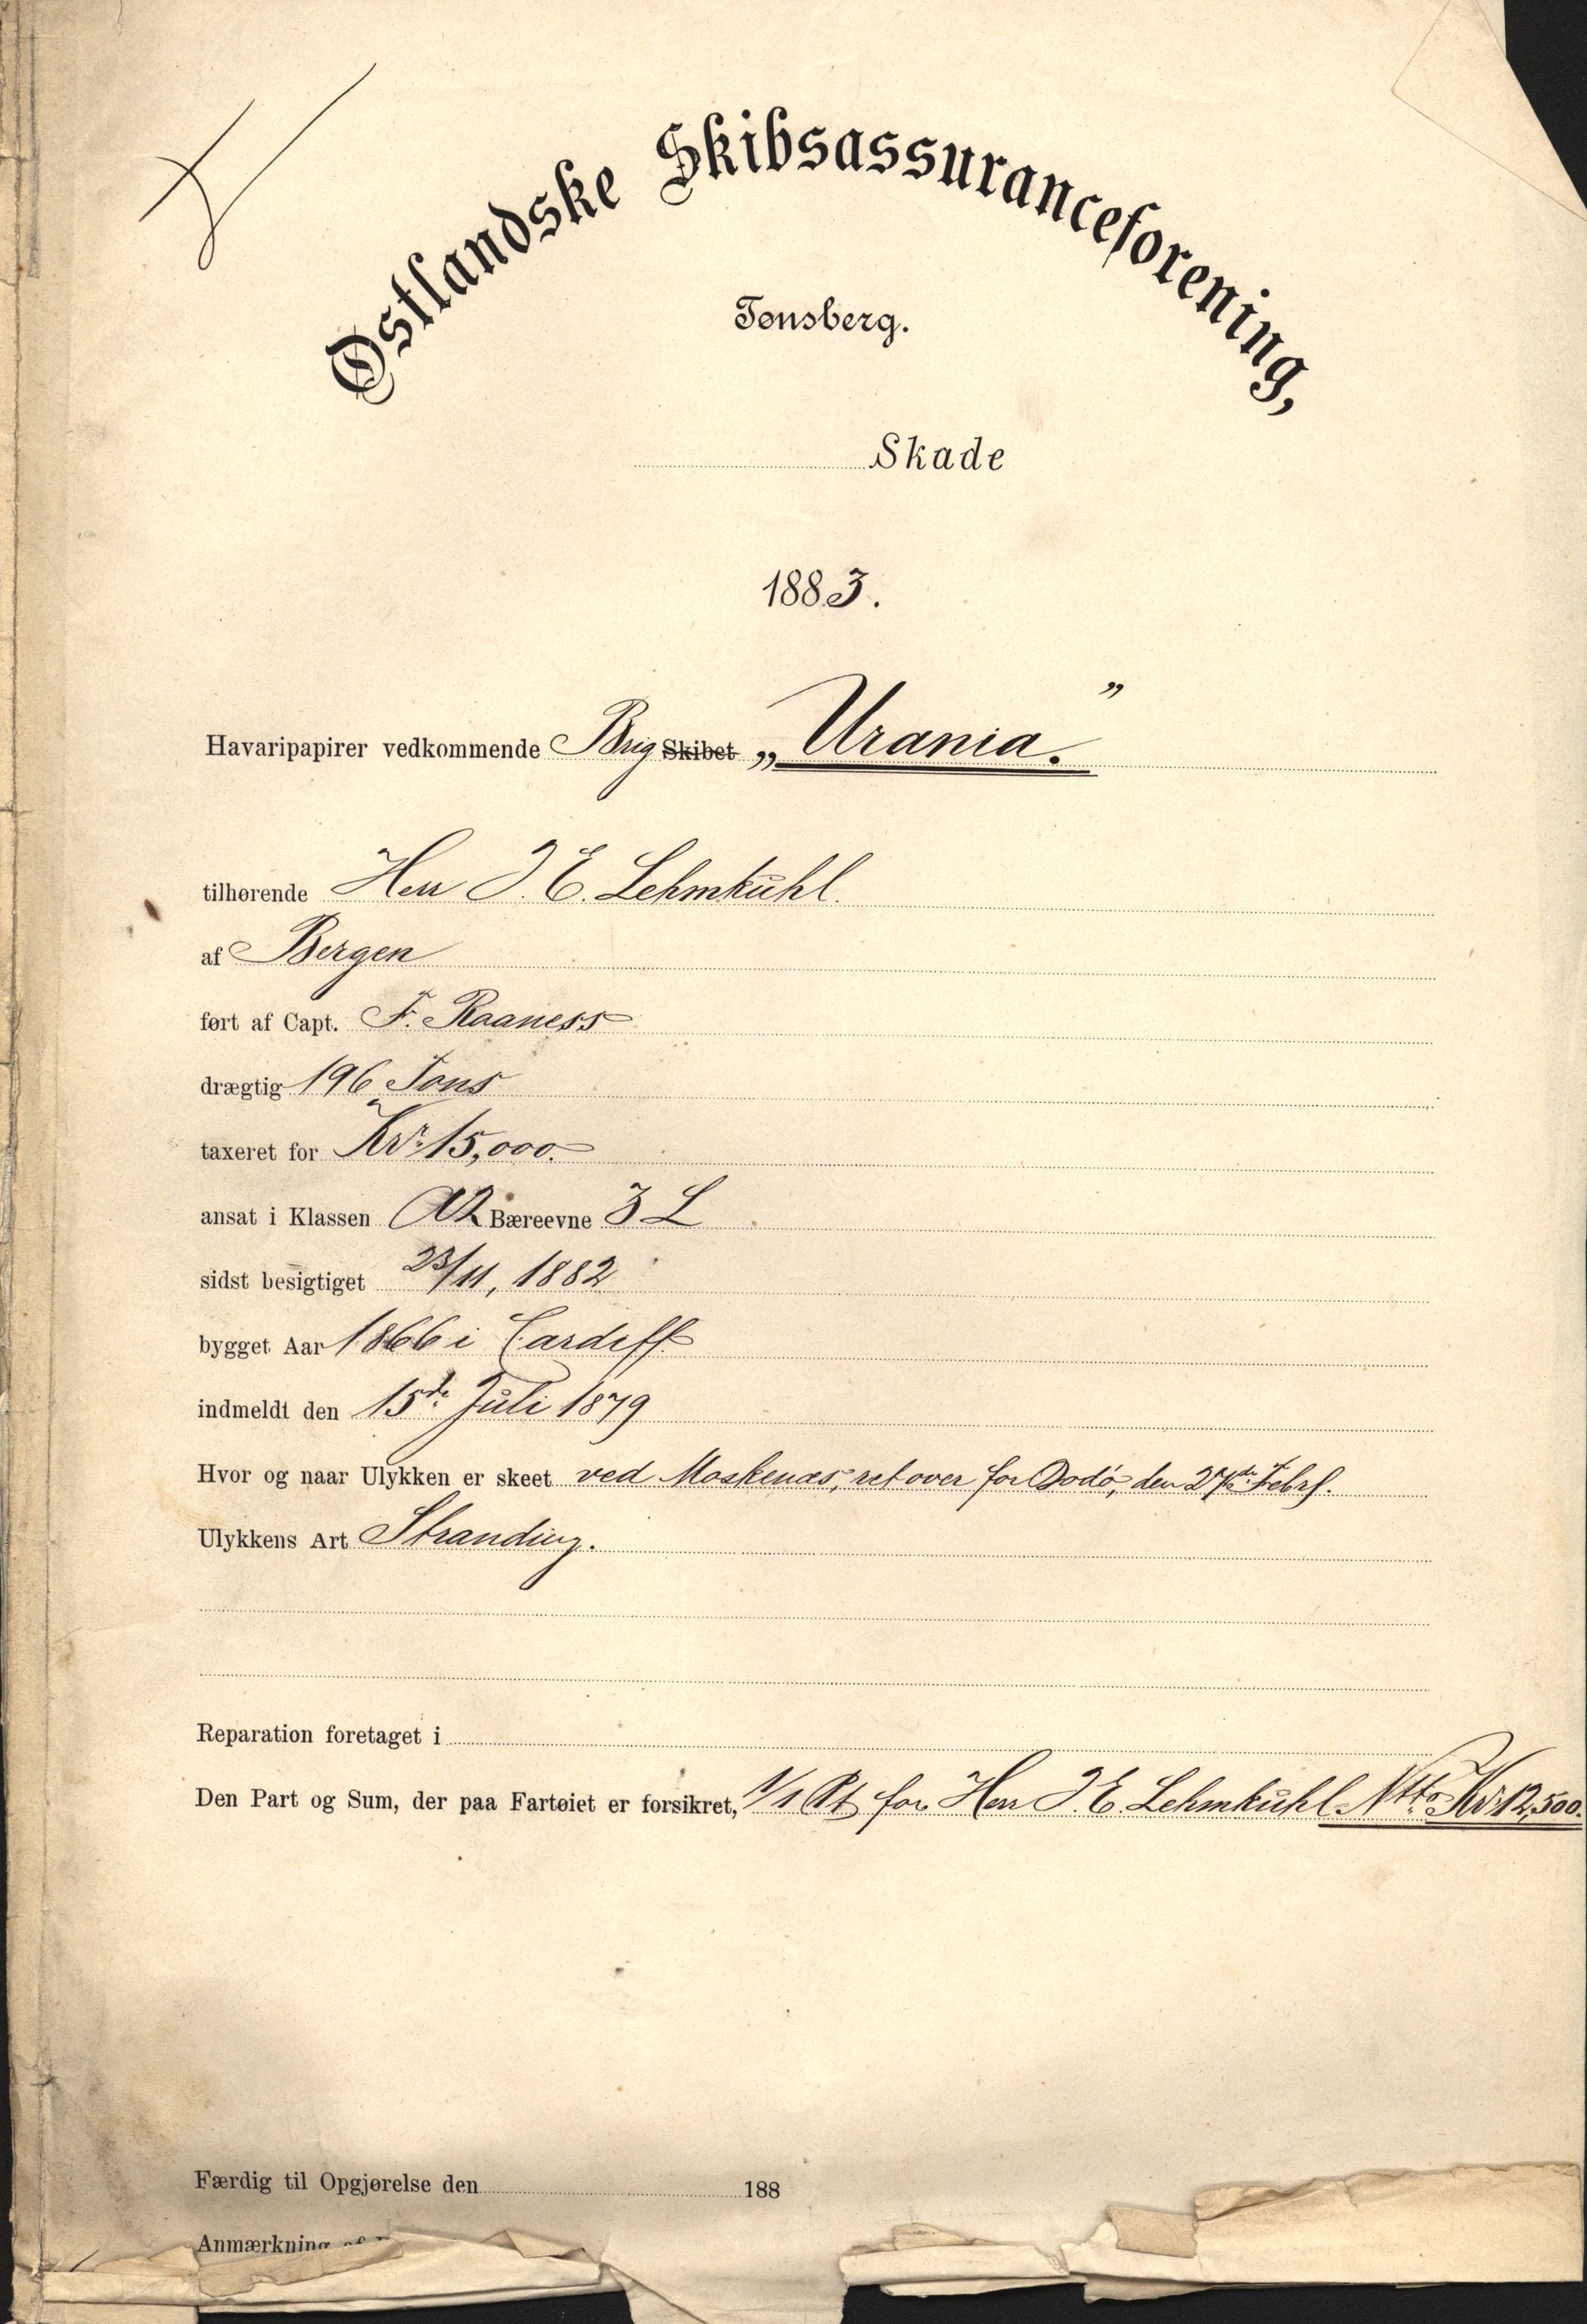 Østlandske Skibsassuranceforening,
Tønsberg.
Skade
1883.
Havaripapirer vedkommende Brig Skibet „Urania."
tilhørende Herr J. E. Lehmkühl.
af Bergen
ført af Capt. F. Raaness
drægtig 196 Tons
taxeret for Kr. 15,000.
ansat i Klassen A2 Bæreevne 3 L
sidst besigtiget 23/11, 1882
bygget Aar 1866 i Cardiff
indmeldt den 15de Juli 1879
Hvor og naar Ulykken er skeet ved Moskenæs, ret over for Bodö, den 27de Febr.
Ulykkens Art Stranding.
Reparation foretaget i
Den Part og Sum, der paa Fartøiet er forsikret, 1/1 Pt for Herr J. E. Lehmkühl Ntto Kr. 12,500.
Færdig til Opgjørelse den 188
Anmærkning af